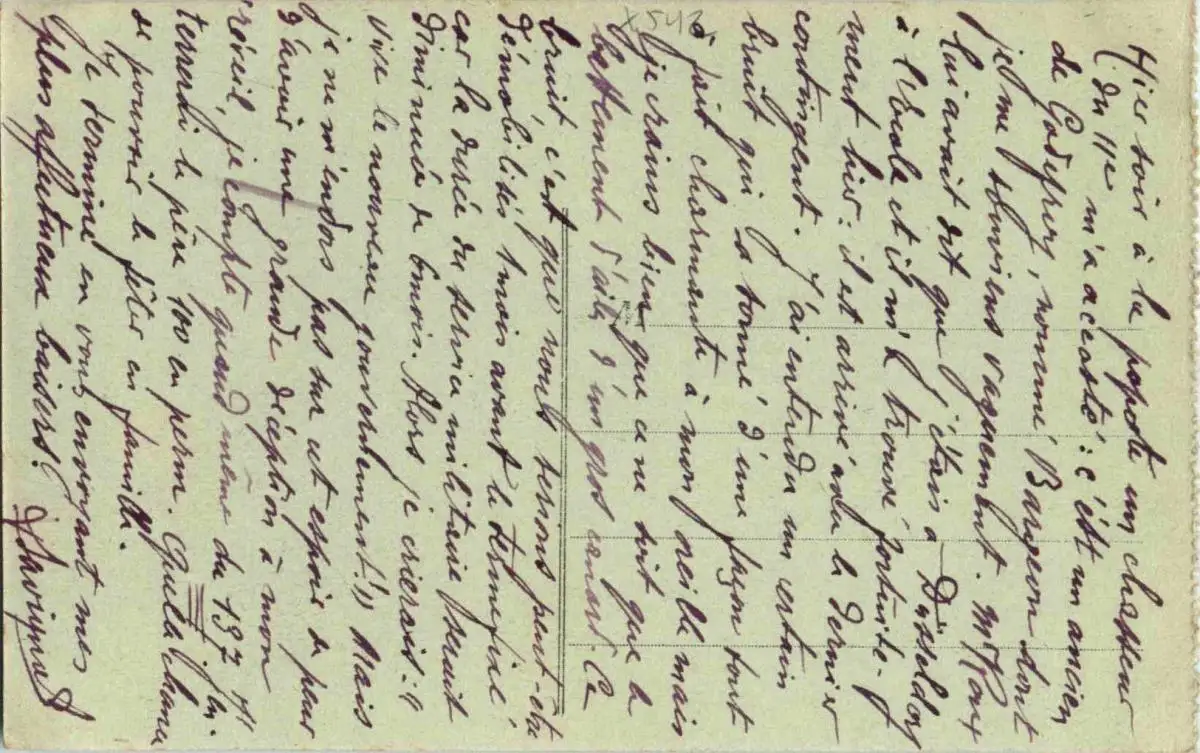 Hier soir à la popote un chasseur
(du 11e m'a accosté: c'est un ancien
de Godefroy, nommé Bargeon dont
je me souviens vaguement. Mr Roux
lui avait dit que j'étais à Düsseldorf
à l'École et il m'a trouvé fortuite-
ment hier: il est arrivé avec le dernier
contingent. J'ai entendu un certain
bruit qui a sonné d'une façon tout
à fait charmante à mon oreille mais
je crains bien que ce ne soit que le
battement d'aile d'un gros canard. Ce
bruit, c'est que nous serions peut-être
démobilisés 1 mois avant le terme fixé:
car la durée du service militaire serait
diminuée de 6 mois. Alors je crierais: "
Vive le nouveau gouvernement!" Mais
je ne m'endors pas sur cet espoir de peur
d'avoir une grande déception à mon
réveil, je compte quand même du 197 }
terrerdi le père 100 en perm. Quelle chance
de pouvoir le fêter en famille.
Je termine en vous envoyant mes
plus affectueux baisers!
X543